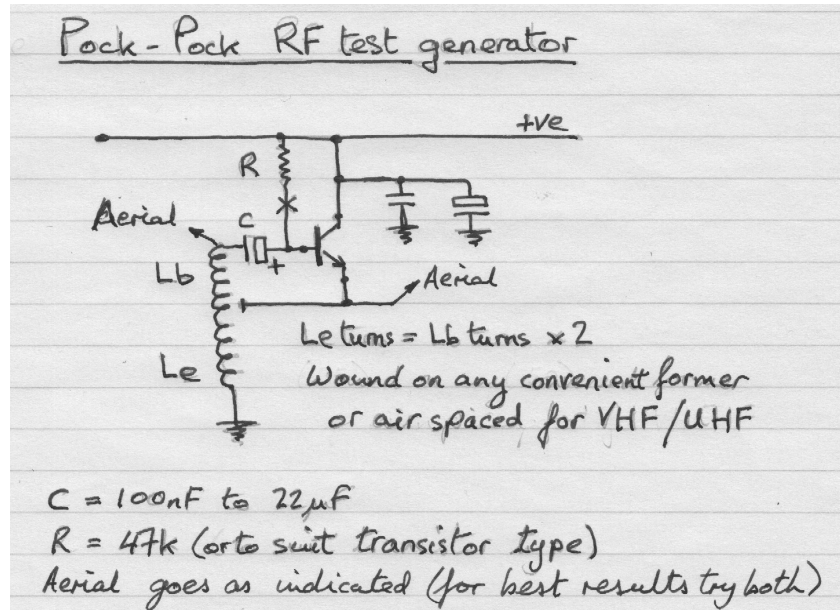 Pock-Pock RF test generator
+ve
R
Aerial
C
+
Lb
Aerial
Le turns = Lb turns × 2
Le
Wound on any convenient former
or air spaced for VHF/UHF
C = 100nF to 22µF
R = 47k (or to suit transistor type)
Aerial goes as indicated (for best results try both)